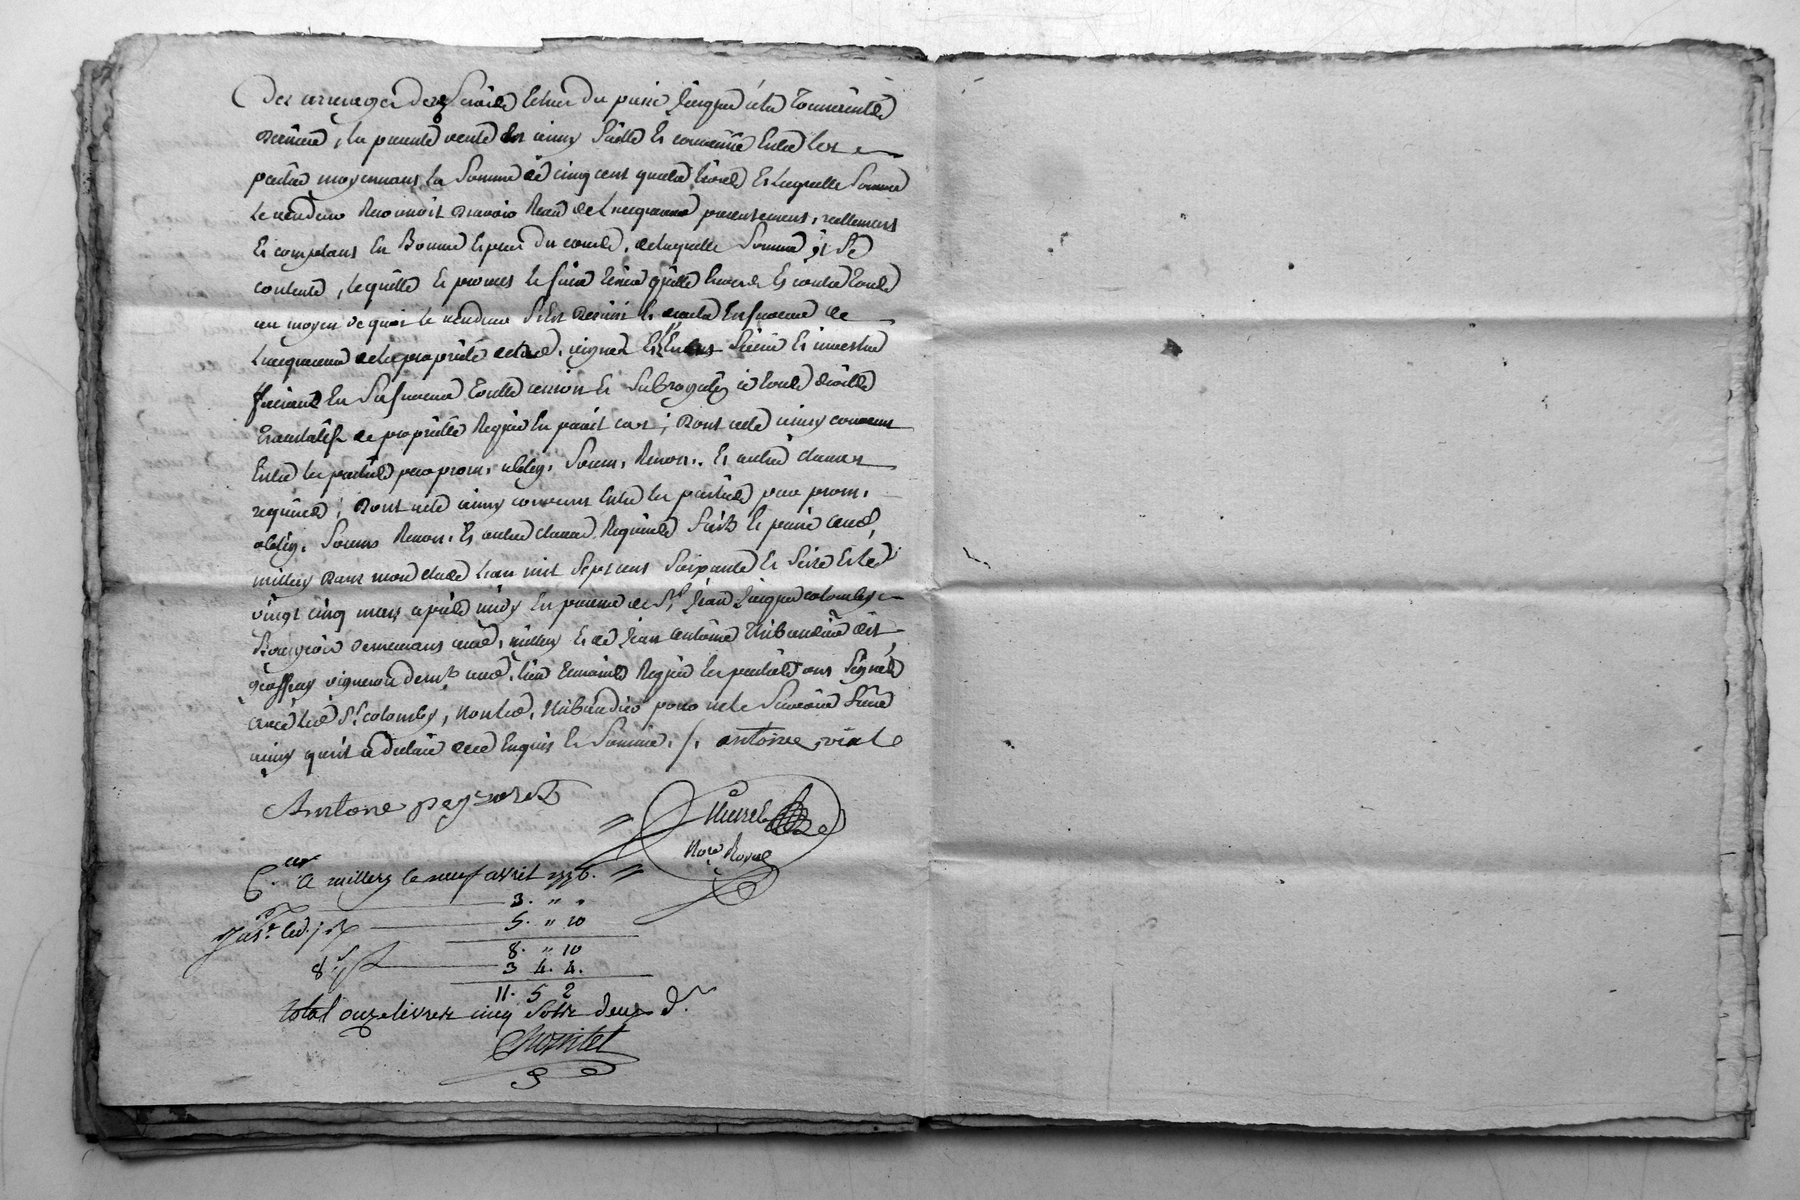 Des arrerages desd. servis Echus du passé jusques à la Toussaints
derniere, la presente vente Est ainsy faitte Et convenüe Entre les
parties moyennant la somme de cinq cent quatre livres Et laquelle somme
le vendeur Reconnoit avoir Reçu de Lacquereur presentement, reellement
Et comptant En Bonnes Especes du cours, de laquelle somme il se
contente, le quitte Et promet le faire tenir quitte Envers Et contre tous
au moyen de quoi le vendeur s'est demis Et devetu En faveur de
Lacquereur de la propriété desd. vignes Et En a saisi Et investu
faisant En sa faveur toutte cession Et subrogation à tous droits
translatif de propriété Requise En pareil cas; Dont acte ainsy convenu
Entre les parties par prom. oblig. soum. Renon. Et autres clauses
requises; Dont acte ainsy convenu Entre les parties par prom.
oblig. soum. Renon. Et autres clauses Requises fait Et passé aud.
millery dans mon étude L'an mil sept cent soixante Et seize Et le
vingt cinq mars après midy En presence de Sr. Jean Jacques colomby
Bourgeois demeurant aud. millery Et de Jean Antoine Thibaudier dit
geoffray vigneron demt. aud. lieu temoins Requis les parties ont signé
avec led. Sr. colomby, non led. Thibaudier pour ne le savoir faire
ainsy qu'il a declaré de ce Enquis Et sommé. /. antoine vial
Antoine peyzaret
Nore. Royal
C.er a millery le neuf avril 1776.
3. " "
5. " 10
8. " 10
8 s/# 3 4. 4.
11. 5 2
total onze livres cinq sols deux d.